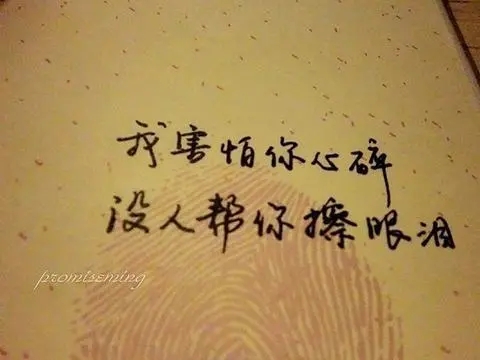 我害怕你心碎
没人帮你擦眼泪
promiseming